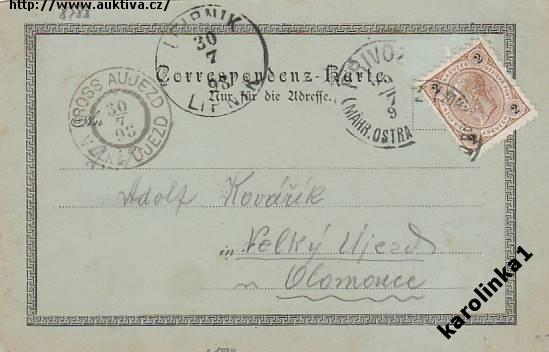 http://www.auktiva.cz/
8788
LEIPNIK
30
7
98
LIPNIK
PŘIVOZ
(MÄHR. OSTRA
GROSS AUJEZD
30
7
98
ÚJEZD
2 2
2 2
Correspondenz-Karte.
Nur für die Adresse.
Adolf Kovářík
in Velký Újezd
u Olomouce
karolinka1